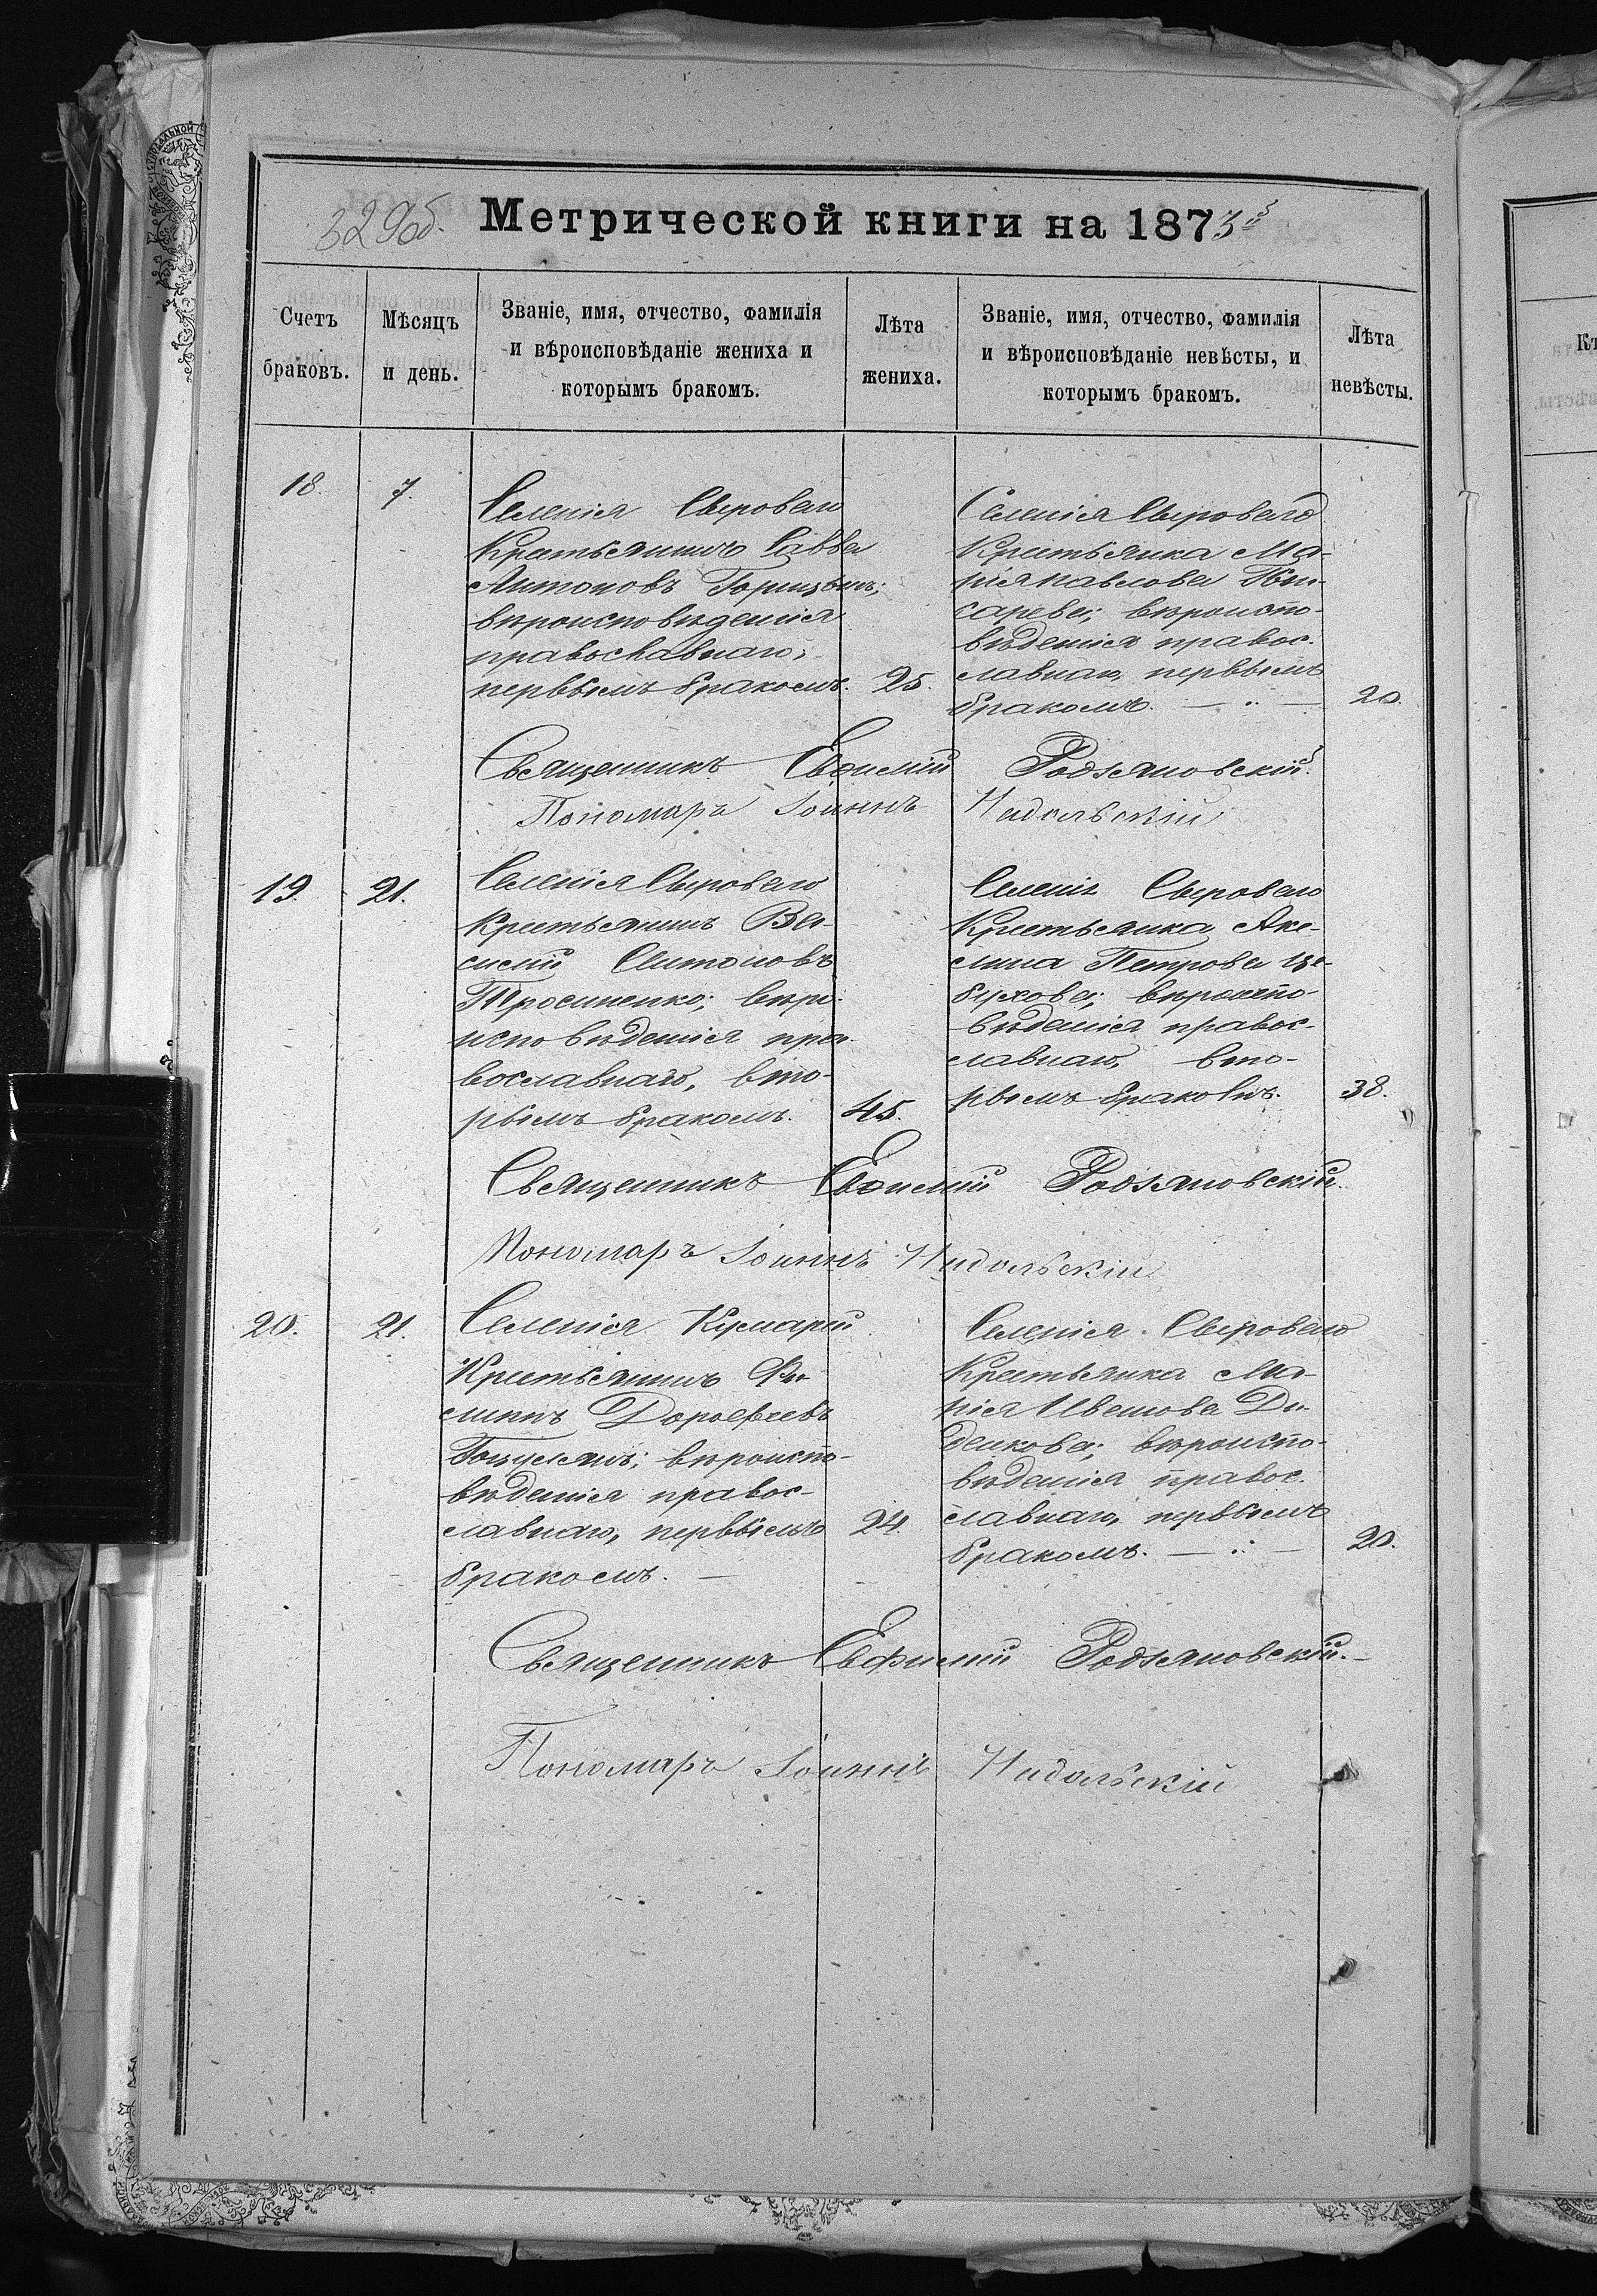 329об. Метрической книги на 1873й
Счетъ браковъ.
Мѣсяцъ и день.
Званіе, имя, отчество, фамилія
и вѣроисповѣданіе жениха и
которымъ бракомъ.
Лѣта жениха.
Званіе, имя, отчество, фамилія
и вѣроисповѣданіе невѣсты, и
которымъ бракомъ.
Лѣта невѣсты.
18.
7.
Селенія Сыроваго
Крестьянинъ Савва
Антоновъ
вѣроисповѣденія
православнаго,
первымъ бракомъ.
25.
Селенія Сыроваго
Крестьянка Ма-
рія Павлова Пи-
сарева; вѣроиспо-
вѣденія правос-
лавнаго, первымъ
бракомъ. — " —
20.
Священникъ Евфимій Родзяновскій.
Пономарь Іоаннъ Надольскій
19.
21.
Селенія Сыроваго
Крестьянинъ Ва-
силій Антоновъ
Трофименко; вѣро-
исповѣденія пра-
вославнаго, вто-
рымъ бракомъ.
45.
Селенія Сыроваго
Крестьянка Аке-
лина Петрова
вѣроиспо-
вѣденія правос-
лавнаго, вто-
рымъ бракомъ.
38.
Священникъ Евфимій Родзяновскій.
Пономарь Іоаннъ Надольскій
20.
21.
Селенія Кумарій
Крестьянинъ Фи-
липпъ Дорофеевъ
вѣроиспо-
вѣденія правос-
лавнаго, первымъ
бракомъ. —
24.
Селенія Сыроваго
Крестьянка Ма-
рія Иванова Ди-
денкова; вѣроиспо-
вѣденія правос-
лавнаго, первымъ
бракомъ. — " —
20.
Священникъ Евфимій Родзяновскій. —
Пономарь Іоаннъ Надольскій